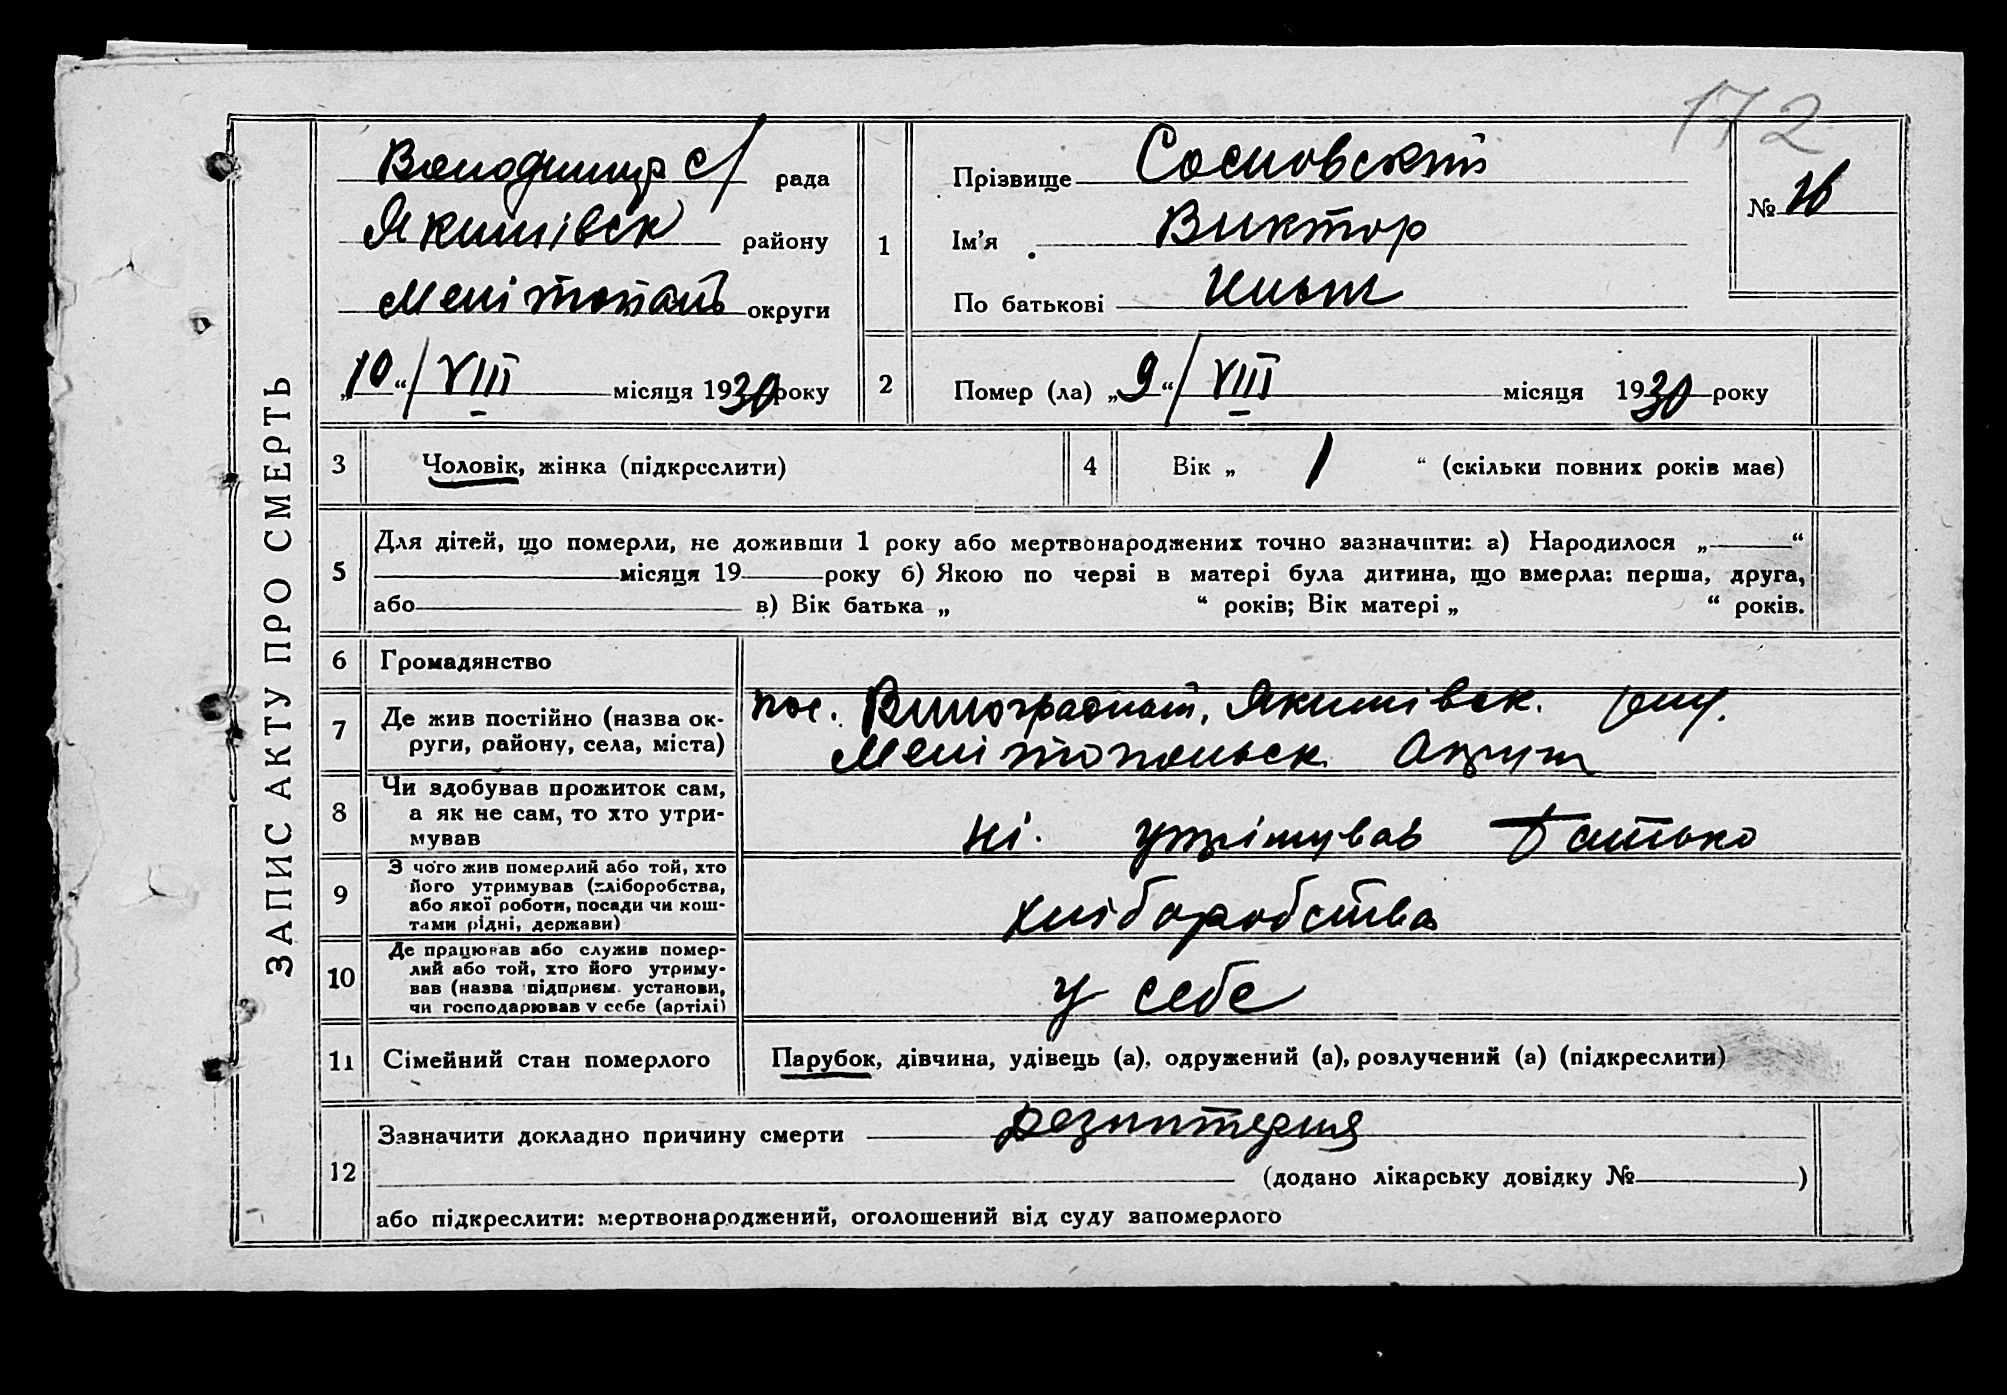 172
ЗАПИС АКТУ ПРО СМЕРТЬ
Володимир с/ рада
Якимівск району
Мелітопань округи
„10“/VIII місяця 1930 року
1
Прізвище Сосновский
Ім'я Виктор
По батькові
№
2
Помер (ла) „9“/VIII місяця 1930 року
3 Чоловік, жінка (підкреслити)
4 Вік „ 1 “ (скільки повних років має)
5
Для дітей, що померли, не доживши 1 року або мертвонароджених точно зазначити: а) Народилося „ “
місяця 19 року б) Якою по черзі в матері була дитина, що вмерла: перша, друга,
або в) Вік батька „ “ років; Вік матері „ “ років.
6 Громадянство
7 Де жив постійно (назва ок-
руги, району, села, міста)
пос. Якимівск.
Мелітопольск Округи
8 Чи здобував прожиток сам,
а як не сам, то хто утри-
мував
ні. утрімував батько
9 З чого жив померлий або той, хто
його утримував (хліборобства,
або якої роботи, посади чи кош-
тами рідні, держави)
хліборобства
10 Де працював або служив помер-
лий або той, хто його утриму-
вав (назва підприєм. установи,
чи господарював у себе (артілі)
у себе
11 Сімейний стан померлого Парубок, дівчина, удівець (а), одружений (а), розлучений (а) (підкреслити)
12
Зазначити докладно причину смерти дезинтерия
(додано лікарську довідку № )
або підкреслити: мертвонароджений, оголошений від суду запомерлого